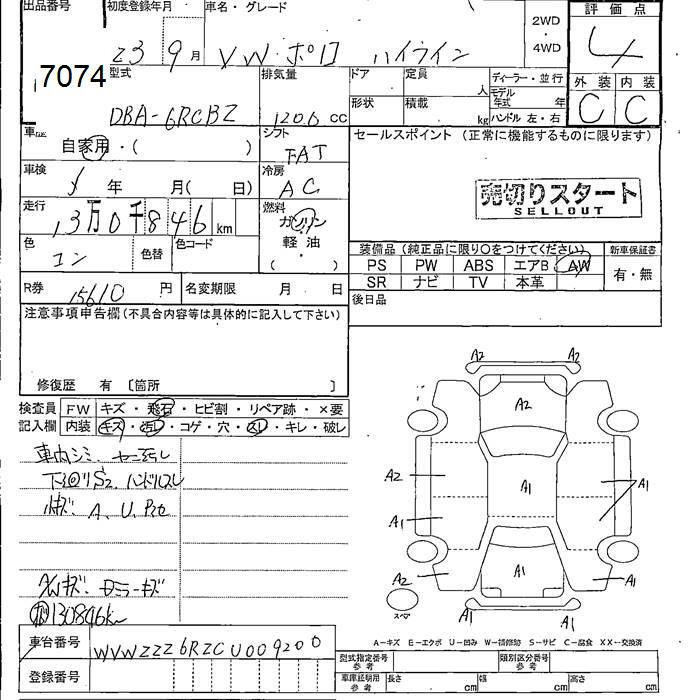 出品番号 初度登録年月 車名・グレード 2WD ・ 4WD 評価点
7074 23 9月 VW・ポロ ハイライン 4
型式 DBA-6RCBZ 排気量 1200cc
ドア 定員 人 ディーラー・並行
形状 積載 kg モデル年式 年 ハンドル 左・右
外装 内装
C C
車歴 自家用・( ) シフト FAT
セールスポイント (正常に機能するものに限ります)
車検 年 月( 日) 冷房 AC
売切りスタート
SELLOUT
走行 13万0千846km 燃料 ガソリン・軽油 ( )
色 コン 色替 色コード
装備品 (純正品に限り○をつけてください) 新車保証書
PS PW ABS エアB AW 有・無
SR ナビ TV 本革
R券 15610円 名変期限 月 日
後日品
注意事項申告欄(不具合内容等は具体的に記入して下さい)
修復歴 有 〔箇所 〕
検査員 FW キズ・飛石・ヒビ割・リペア跡・×要
記入欄 内装 キズ・汚レ・コゲ・穴・スレ・キレ・破レ
車内シミ
下廻りS2 ハンドルスレ
小キズ A、U、
A/Wキズ、ミラーキズ
130846km
A2 A2
A2
A2 A1 A1
A1
A2 A1 A1
スペア A1 A1
A-キズ E-エクボ U-凹み W-補修跡 S-サビ C-腐食 XX-交換済
車台番号 WVWZZZ6RZCU009200
登録番号
型式指定番号 参考 類別区分番号 参考
車庫証明用 参考 長さ cm 幅 cm 高さ cm